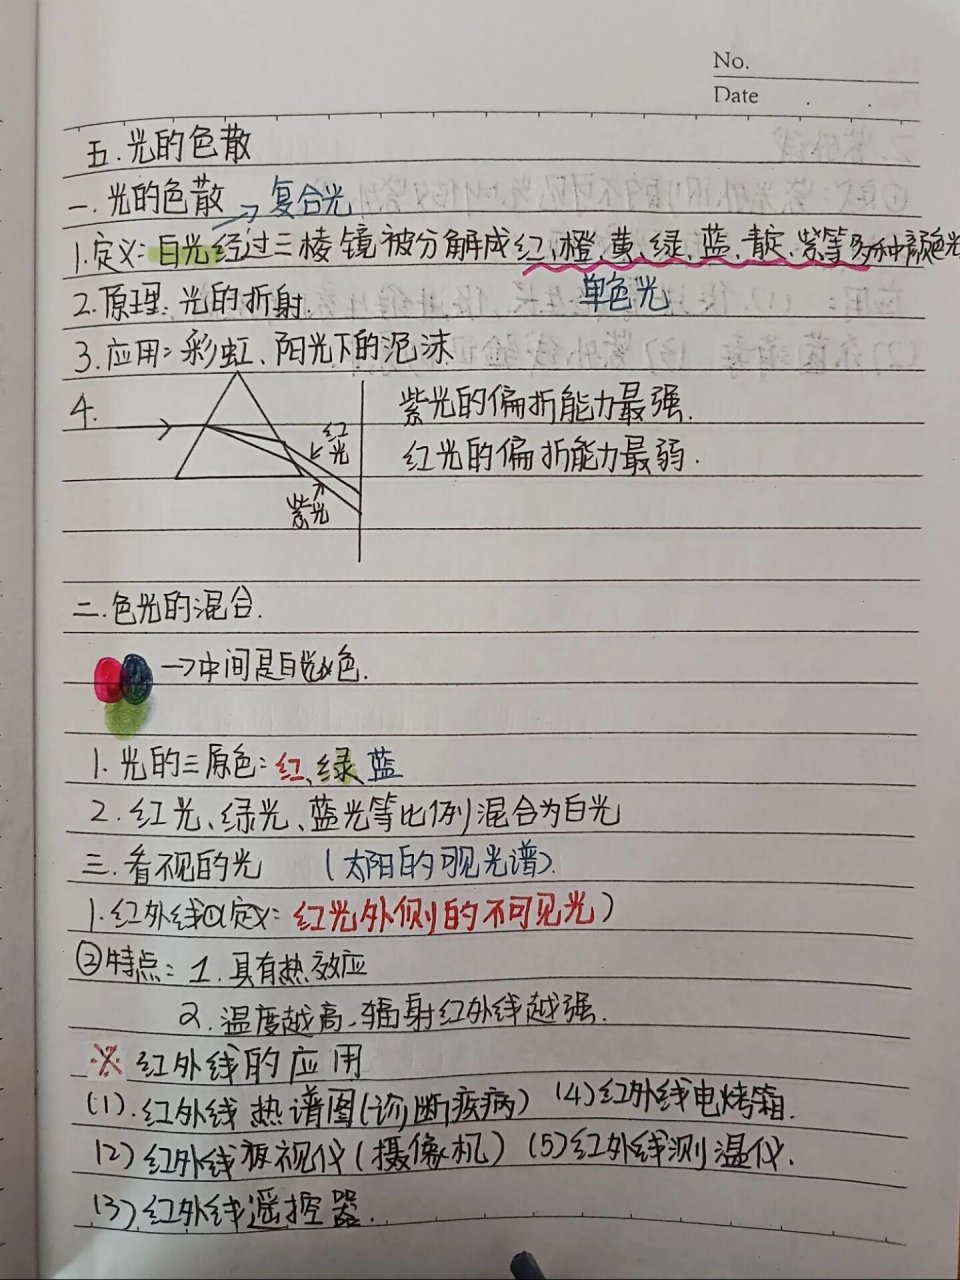 No.
Date
五.光的色散
一.光的色散 → 复合光
1.定义:白光经过三棱镜被分解成红、橙、黄、绿、蓝、靛、紫等多种颜色光
2.原理:光的折射.
单色光
3.应用:彩虹、阳光下的泡沫
4.
红光
紫光
紫光的偏折能力最强.
红光的偏折能力最弱.
二.色光的混合.
→中间是白色.
1.光的三原色:红、绿、蓝
2.红光、绿光、蓝光等比例混合为白光
三.看不见的光 (太阳的可见光谱).
1.红外线①(定义:红光外侧的不可见光)
②特点:1.具有热效应
2.温度越高、辐射红外线越强.
※ 红外线的应用
(1).红外线热谱图(诊断疾病) (4)红外线电烤箱.
(2)红外线夜视仪(摄像机) (5)红外线测温仪.
(3)红外线遥控器.